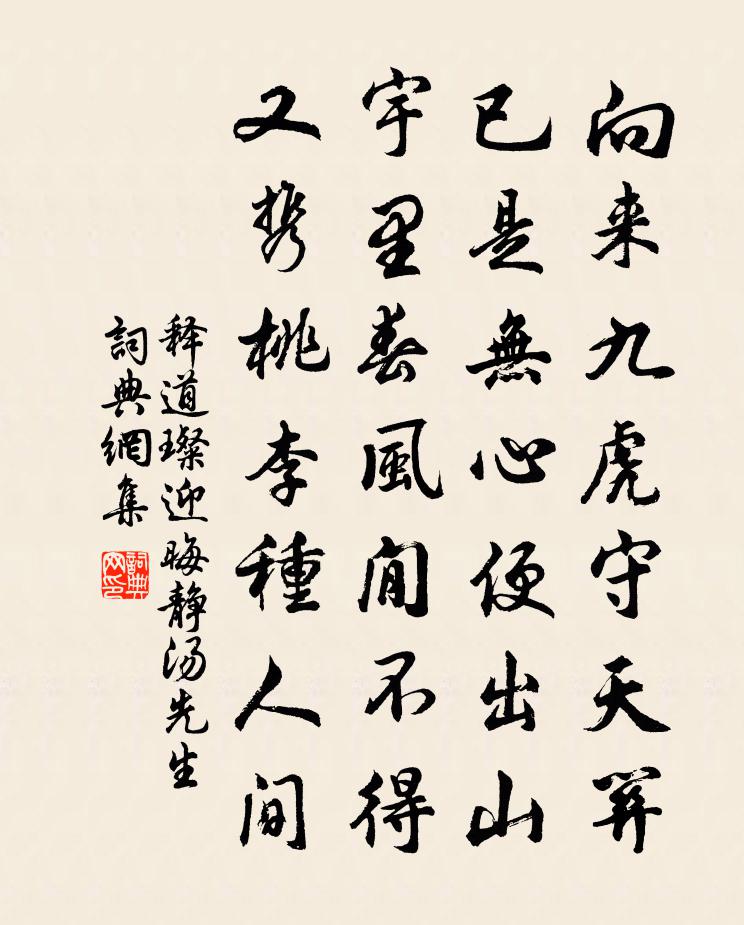 向来九虎守天關
已是無心便出山
宇里春風閒不得
又携桃李種人间
释道璨迎晦静汤先生
詞典網集
詞典网印